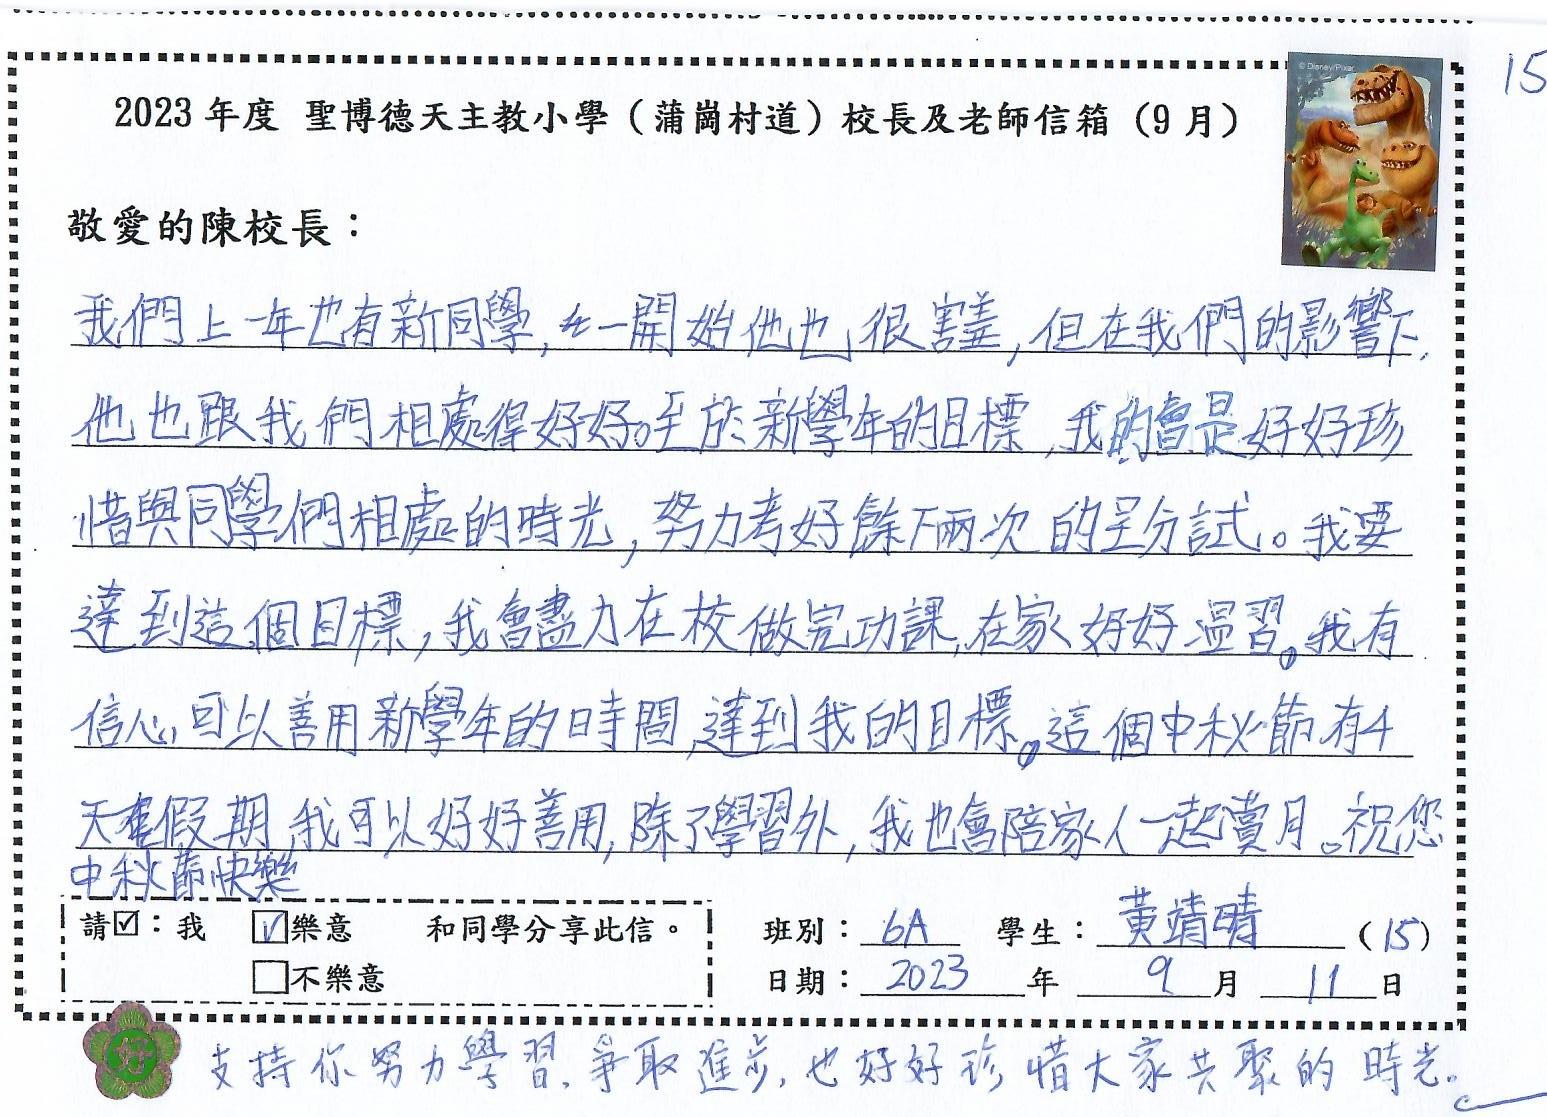 15
© Disney/Pixar
2023 年度 聖博德天主教小學（蒲崗村道）校長及老師信箱（9 月）
敬愛的陳校長：
我們上一年也有新同學,在一開始他也很害羞,但在我們的影響下,
他也跟我們相處得好好。至於新學年的目標,我的會是好好珍
惜與同學們相處的時光,努力考好餘下兩次的呈分試。我要
達到這個目標,我會盡力在校做完功課,在家好好溫習。我有
信心,可以善用新學年的時間,達到我的目標。這個中秋節有4
天假期,我可以好好善用,除了學習外,我也會陪家人一起賞月。祝您
中秋節快樂
請☑：我 ☑樂意 和同學分享此信。
□不樂意
班別：6A 學生：黃靖晴（15）
日期：2023年 9月 11日
好
支持你努力學習,爭取進步,也好好珍惜大家共聚的時光。